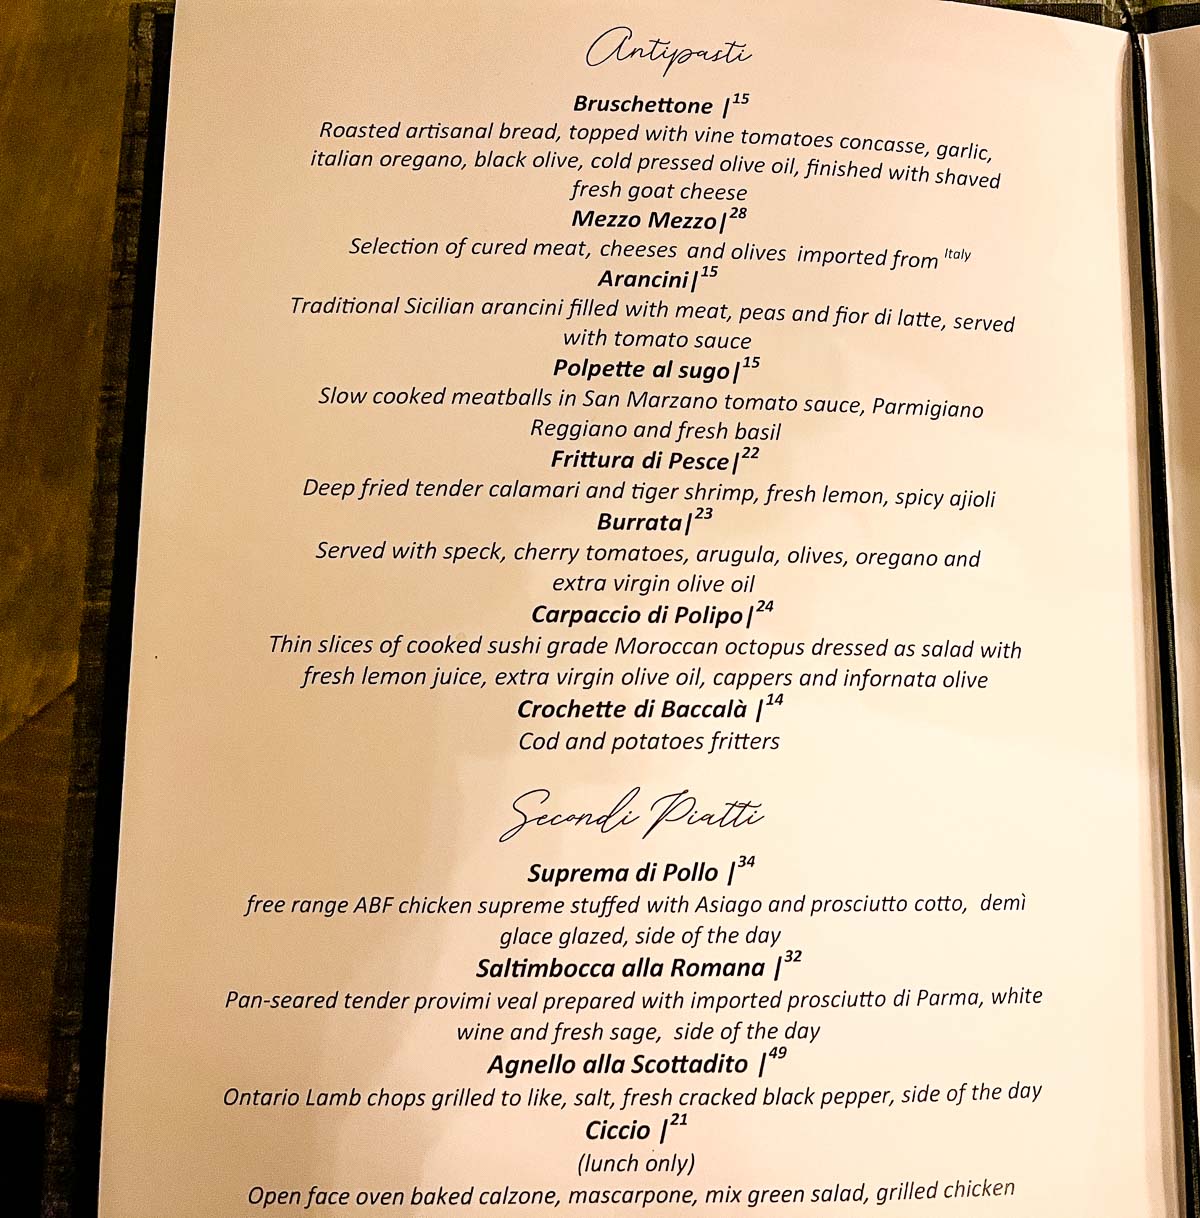 Antipasti
Bruschettone |15
Roasted artisanal bread, topped with vine tomatoes concasse, garlic,
italian oregano, black olive, cold pressed olive oil, finished with shaved
fresh goat cheese
Mezzo Mezzo|28
Selection of cured meat, cheeses and olives imported from Italy
Arancini|15
Traditional Sicilian arancini filled with meat, peas and fior di latte, served
with tomato sauce
Polpette al sugo|15
Slow cooked meatballs in San Marzano tomato sauce, Parmigiano
Reggiano and fresh basil
Frittura di Pesce|22
Deep fried tender calamari and tiger shrimp, fresh lemon, spicy ajioli
Burrata|23
Served with speck, cherry tomatoes, arugula, olives, oregano and
extra virgin olive oil
Carpaccio di Polipo|24
Thin slices of cooked sushi grade Moroccan octopus dressed as salad with
fresh lemon juice, extra virgin olive oil, cappers and infornata olive
Crochette di Baccalà |14
Cod and potatoes fritters
Secondi Piatti
Suprema di Pollo |34
free range ABF chicken supreme stuffed with Asiago and prosciutto cotto, demì
glace glazed, side of the day
Saltimbocca alla Romana |32
Pan-seared tender provimi veal prepared with imported prosciutto di Parma, white
wine and fresh sage, side of the day
Agnello alla Scottadito |49
Ontario Lamb chops grilled to like, salt, fresh cracked black pepper, side of the day
Ciccio |21
(lunch only)
Open face oven baked calzone, mascarpone, mix green salad, grilled chicken